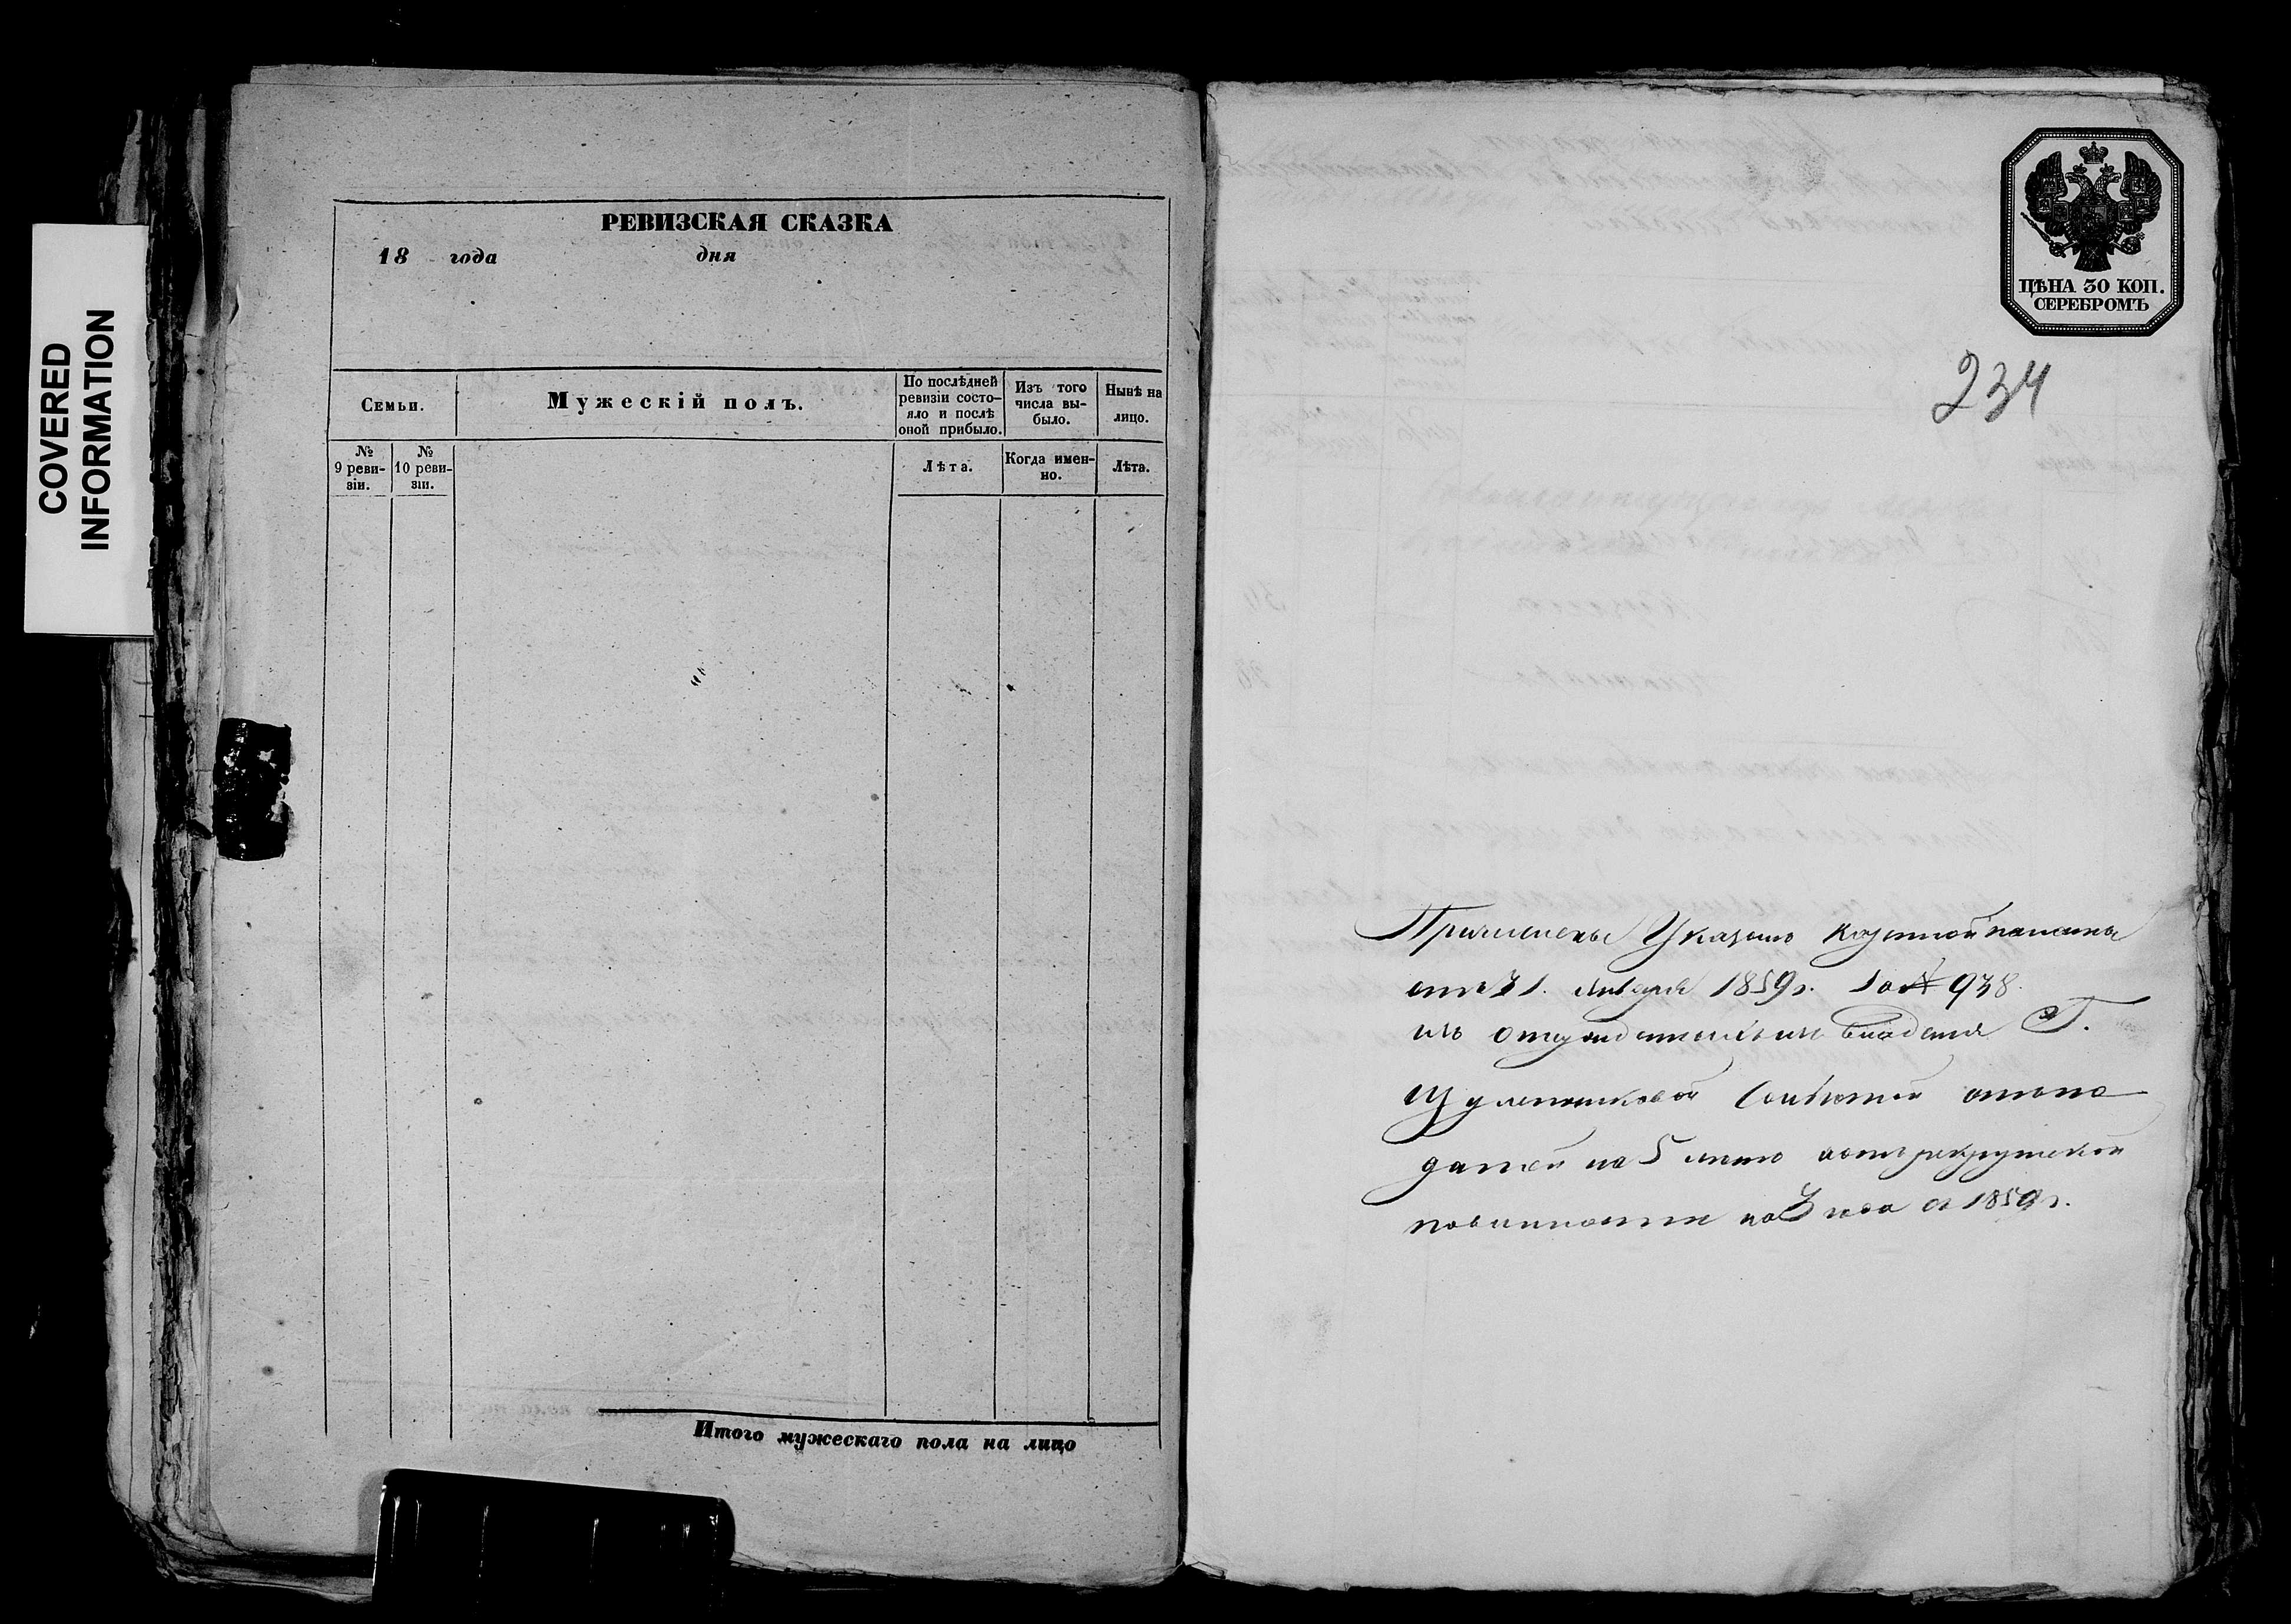 COVERED
INFORMATION
РЕВИЗСКАЯ СКАЗКА
18 года дня
Семьи.
Мужескій полъ.
По послѣдней
ревизіи состо-
яло и послѣ
оной прибыло.
Изъ того
числа вы-
было.
Нынѣ на
лицо.
№
9 реви-
зіи.
№
10 реви-
зіи.
Лѣта.
Когда имен-
но.
Лѣта.
Итого мужескаго пола на лицо
ЦѢНА 30 КОП.
СЕРЕБРОМЪ
234
Причислены Указомъ Казенной палаты
отъ 31. Января 1859 г. за № 938.
изъ отпущенныхъ владенія Г.
датей на 5 летъ а отъ рекрутской
повинности на 3 года съ 1859 г.